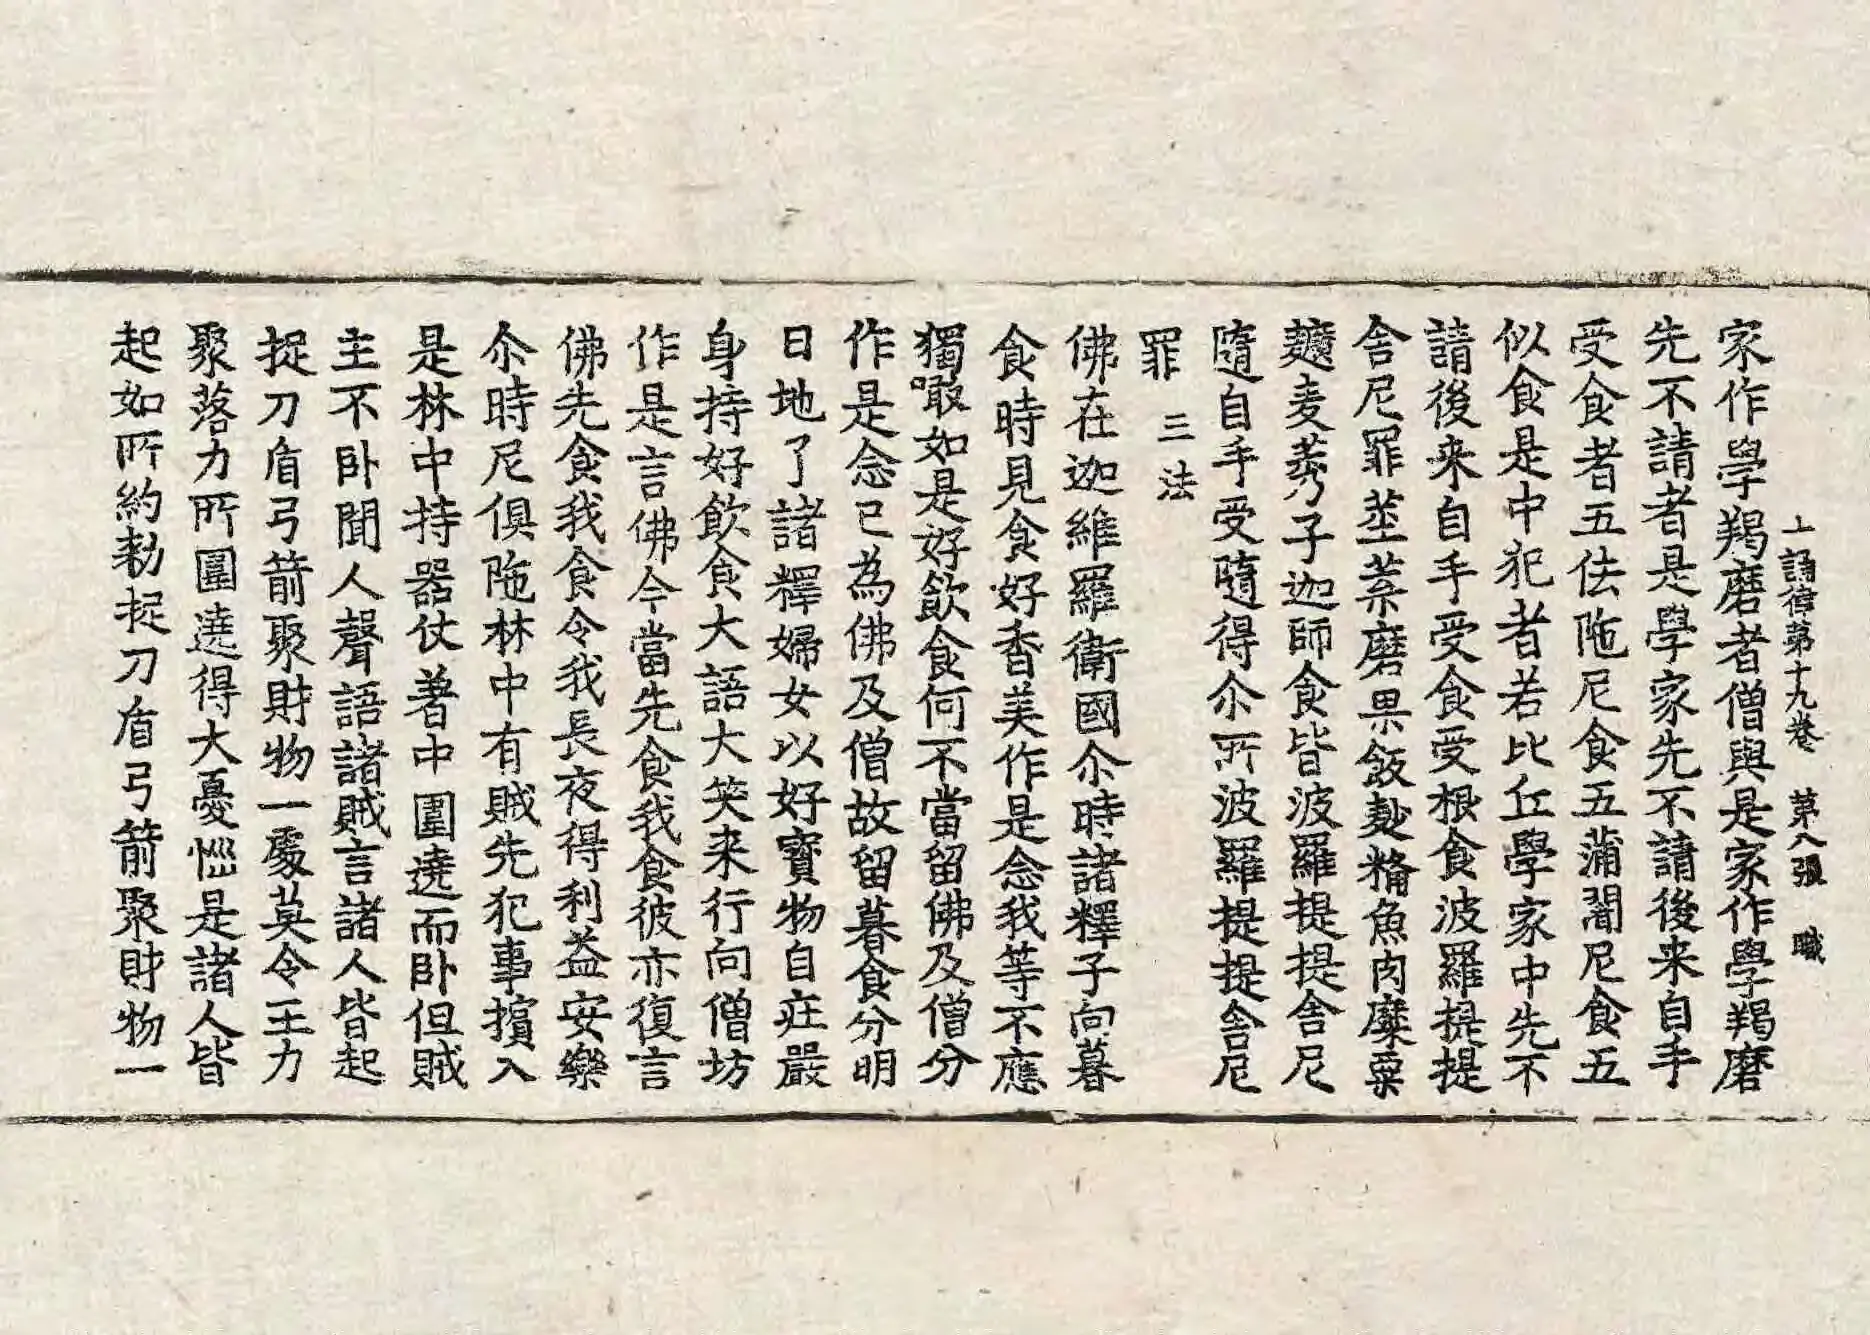 十誦律第十九卷 第八張 職
家作學羯磨者僧與是家作學羯磨
先不請者是學家先不請後来自手
受食者五佉陁尼食五蒲闍尼食五
似食是中犯者若比丘學家中先不
請後来自手受食受根食波羅提提
舍尼罪莖葉磨果飯麨糒魚肉糜粟
䵃麦莠子迦師食皆波羅提提舍尼
隨自手受隨得尒所波羅提提舍尼
罪 三法
佛在迦維羅衛國尒時諸釋子向暮
食時見食好香美作是念我等不應
獨噉如是好飲食何不當留佛及僧分
作是念已為佛及僧故留暮食分明
日地了諸釋婦女以好寶物自莊嚴
身持好飲食大語大笑来行向僧坊
作是言佛今當先食我食彼亦復言
佛先食我食令我長夜得利益安樂
尒時尼俱陁林中有賊先犯事擯入
是林中持器仗著中圍遶而卧但賊
主不卧聞人聲語諸賊言諸人皆起
捉刀盾弓箭聚財物一處莫令王力
聚落力所圍遶得大憂惱是諸人皆
起如所約勑捉刀盾弓箭聚財物一